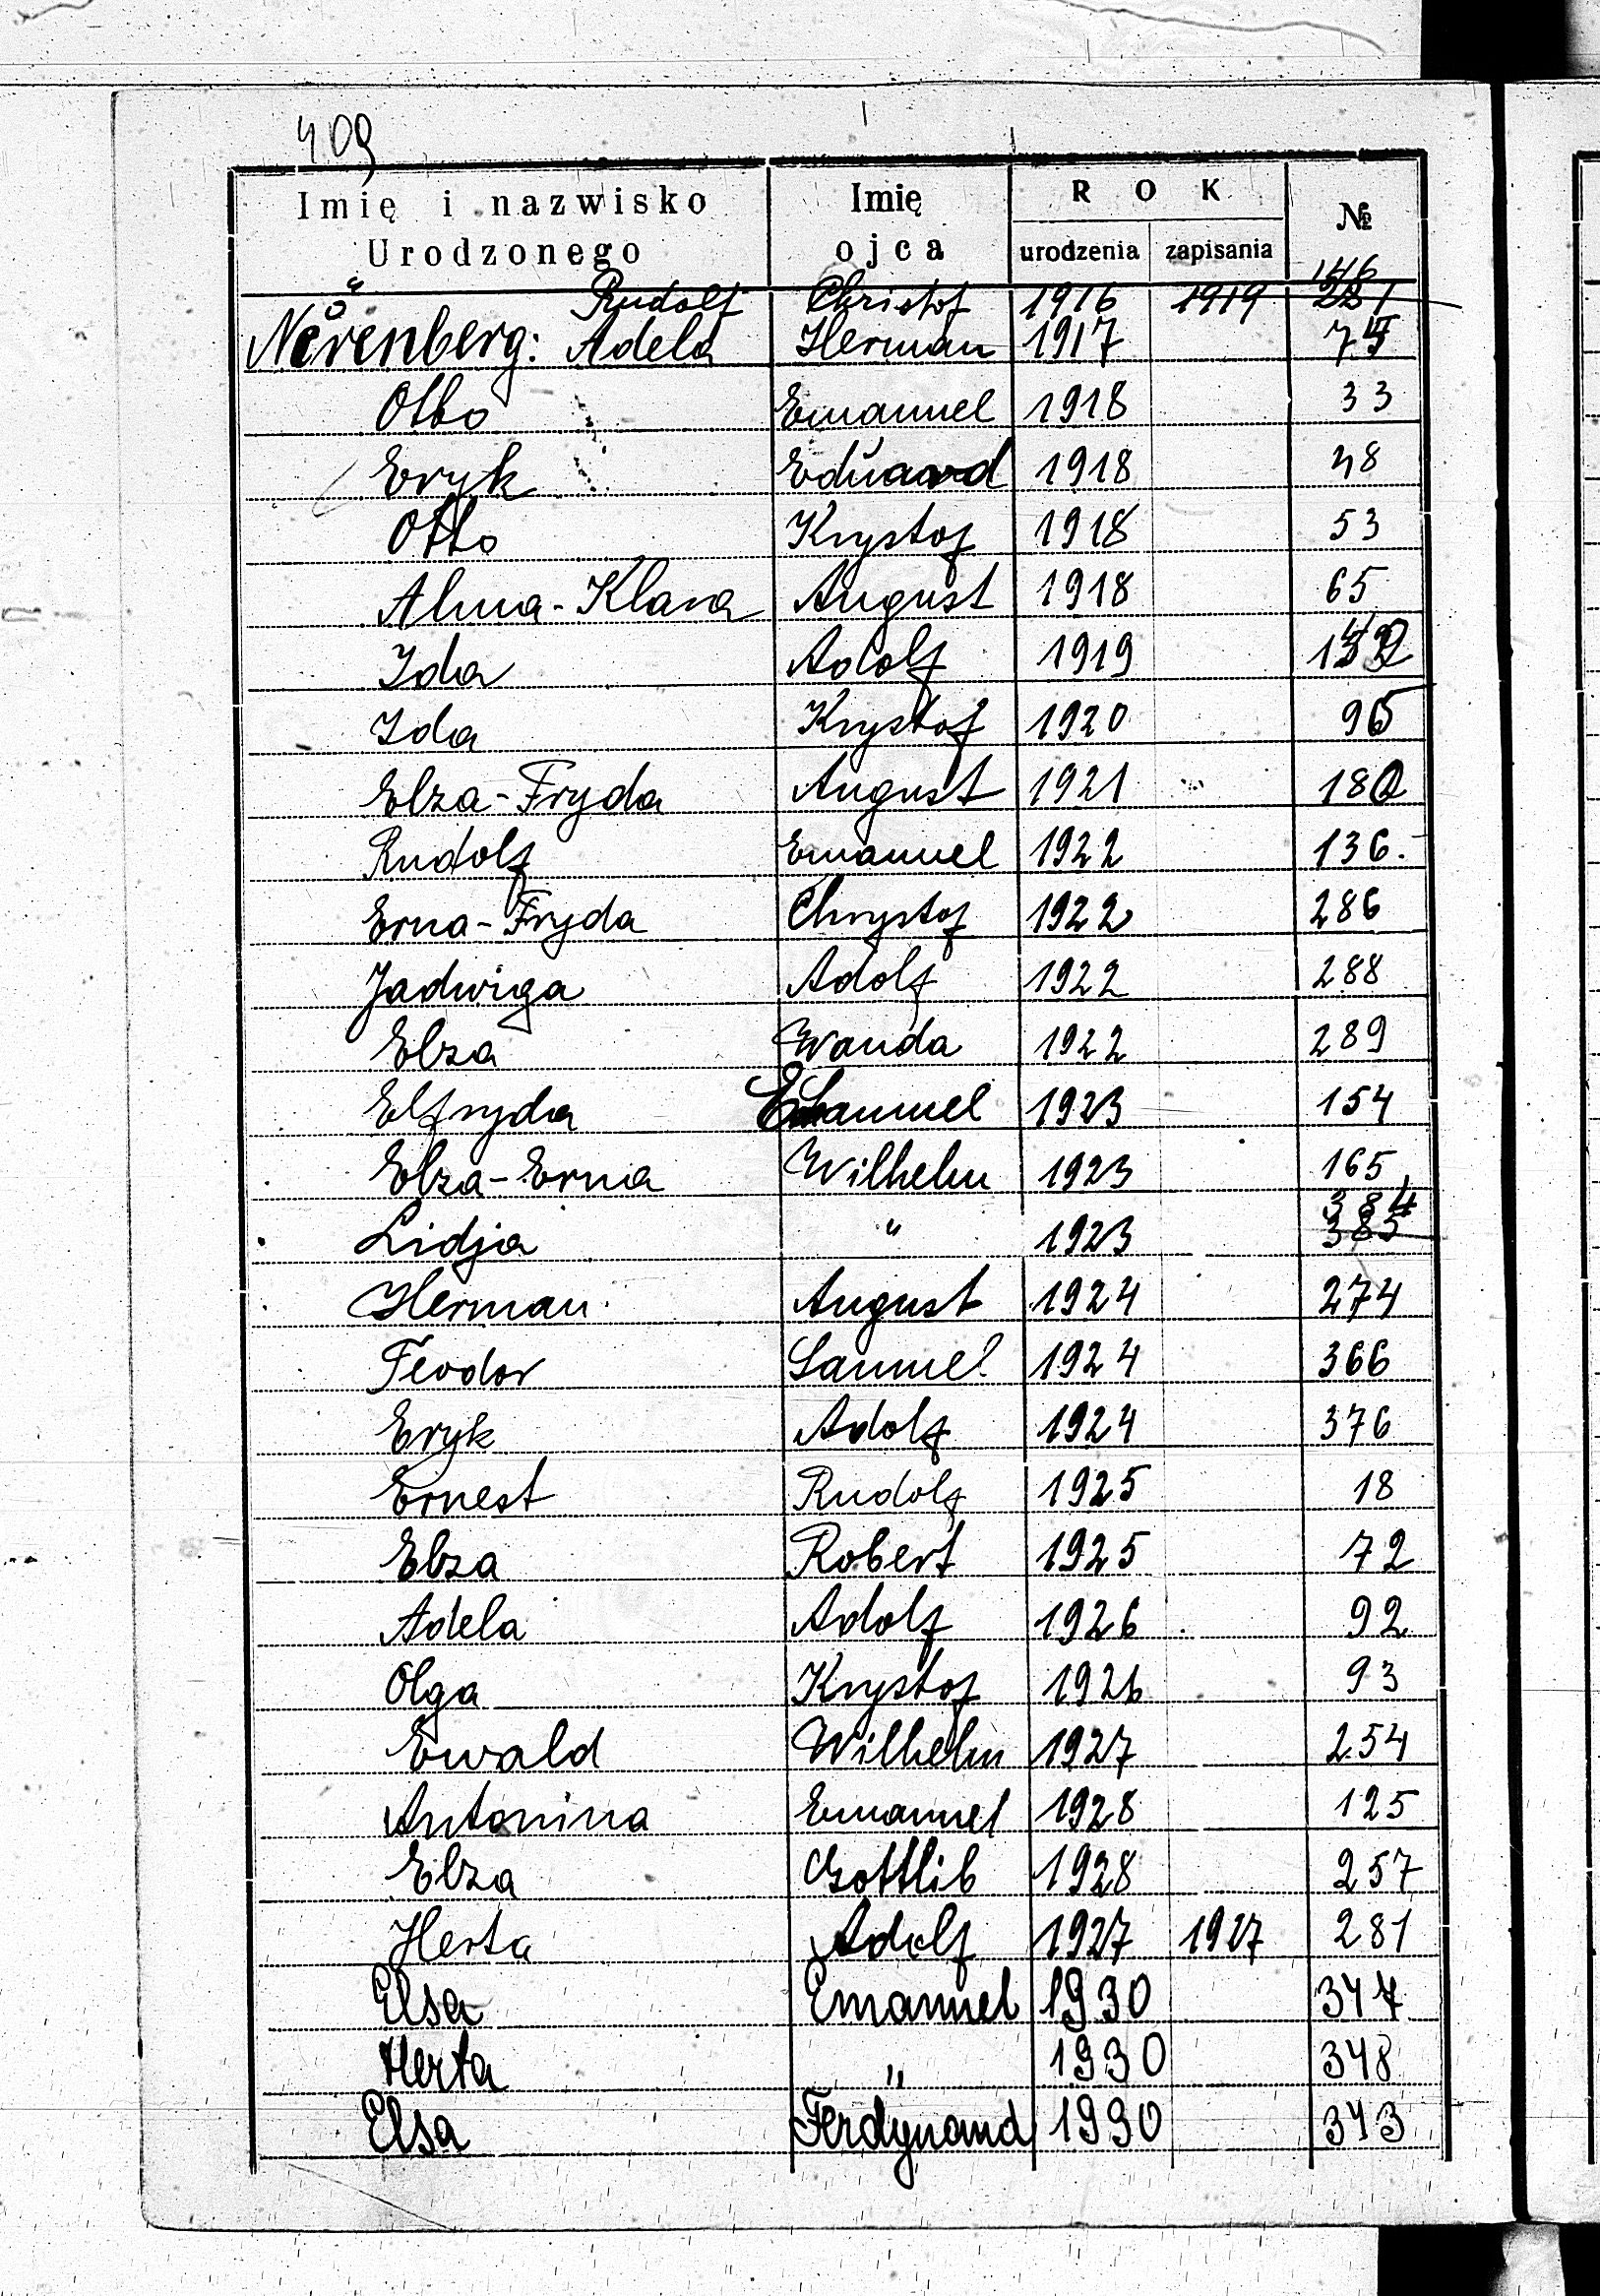 409
Imię i nazwisko Urodzonego Imię ojca ROK urodzenia zapisania №
" Rudolf Christof 1916 1919 146
Nörenberg: Adela Herman 1917
Otto Emanuel 1918 33
Eryk Eduard 1918 48
Otto Krystof 1918 53
Alma-Klara August 1918 65
Ida Adolf 1919
Ida Krystof 1920 95
Elza-Fryda August 1921 180
Rudolf Emanuel 1922 136.
Erna-Fryda Chrystof 1922 286
Jadwiga Adolf 1922 288
Elza Wanda 1922 289
Elfryda Emanuel 1923 154
Elza-Erna Wilhelm 1923 165
Lidja " 1923 384 385
Herman August 1924 274
Feodor Samuel 1924 366
Eryk Adolf 1924 376
Ernest Rudolf 1925 18
Elza Robert 1925 72
Adela Adolf 1926 92
Olga Krystof 1926 93
Ewald Wilhelm 1927 254
Antonina Emanuel 1928 125
Elza Gottlib 1928 257
Herta Adolf 1927 1927 281
Elsa Emanuel 1930 347
Herta " 1930 348
Elsa Ferdynand 1930 343